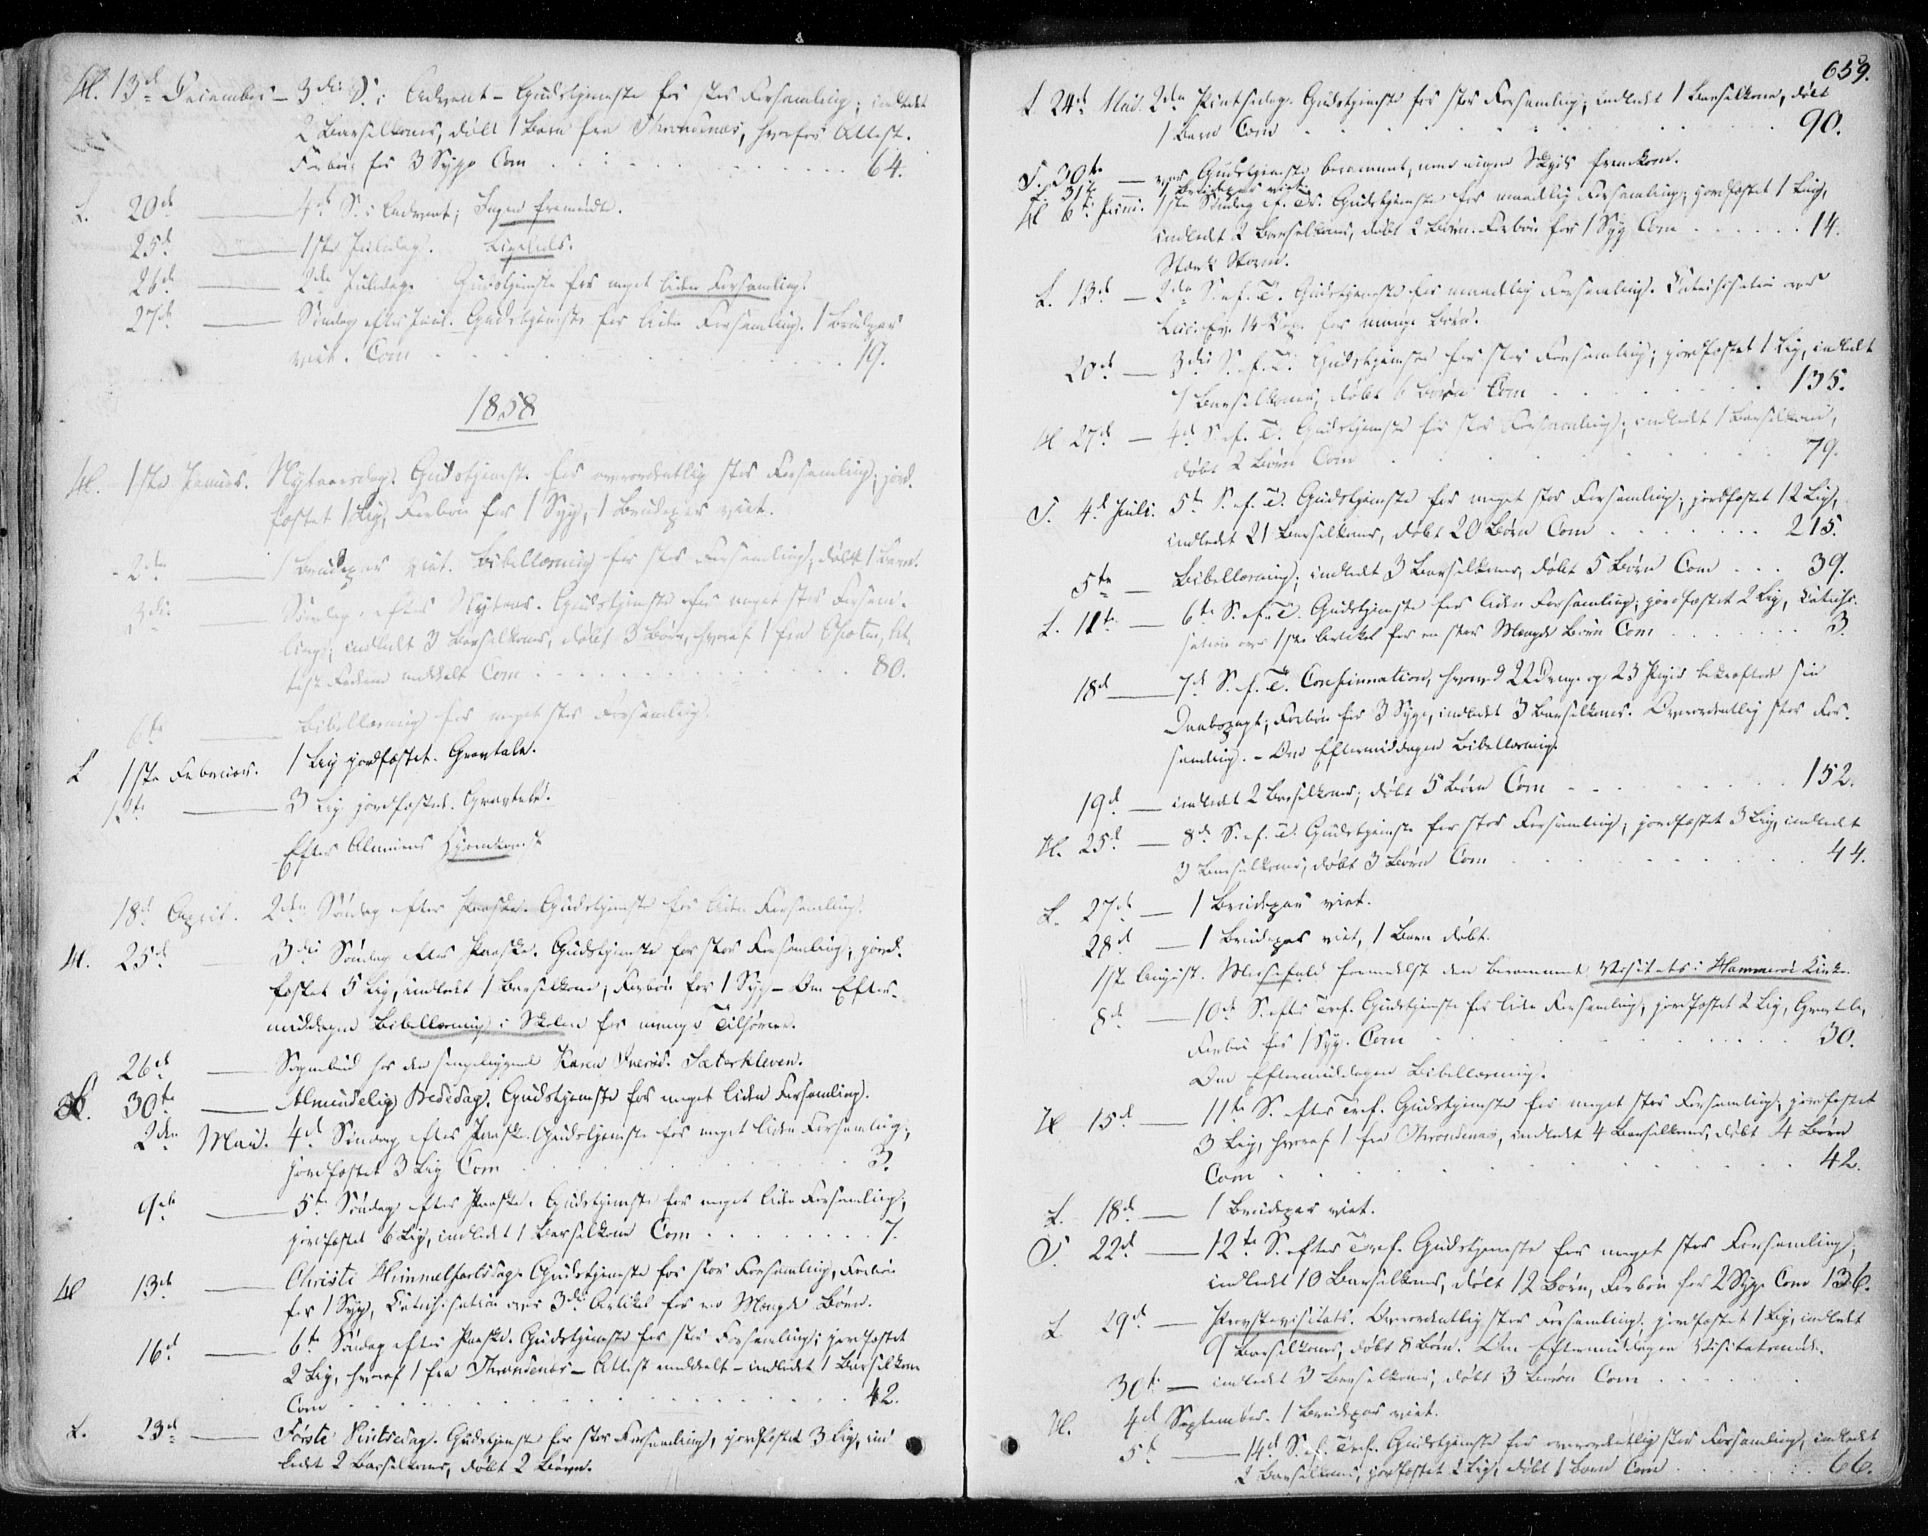 H. 13de December - 3die S. i Advent - Gudstjeneste for stor Forsamling; indledt
2 Barselkoner, døbt 1 Barn fra Throndenæs, hvorfor Attest.
Forbøn for 3 Syge Com . . . 64.
L. 20de — 4de S. i Advent; Ingen fremmødte.
25de — 1ste Juledag. Ligeledes.
26de — 2den Juledag. Gudstjeneste for meget liden Forsamling.
27de — Søndag efter Juul. Gudstjeneste for liden Forsamling. 1 Brudepar
viet. Com . . . 19.
1858
H. 1ste Januar. Nytaarsdag. Gudstjeneste for overordentlig stor Forsamling; jord-
fæstet 1 Lig, Forbøn for 1 Syg, 1 Brudepar viet.
2den — 1 Brudepar viet. Bibellæsning for stor Forsamling; døbt 1 Barn.
3die — Søndag efter Nytaar. Gudstjeneste for meget stor Forsam-
ling; indledt 3 Barselkoner, døbt 3 Børn, hvoraf 1 fra At-
test meddelt Com . . . 80.
6te — Bibellæsning for meget stor Forsamling.
L 1ste Februar. 1 Lig jordfæstet. Gravtale.
12te — 3 Lig jordfæstet. Gravtale.
Efter Hjemkomst
18de April. 2den Søndag efter Paaske. Gudstjeneste for liden Forsamling.
H. 25de — 3die Søndag efter Paaske. Gudstjeneste for stor Forsamling; jord-
fæstet 5 Lig, indledt 1 Barselkone, Forbøn for 1 Syg - Om Efter-
middagen Bibellæsning i Skolen for mange Tilhørere.
26de — Sognebud hos den sengeliggende Karen Sæterkleven.
30te — Almindelig Bededag. Gudstjeneste for meget liden Forsamling.
2den Mai. 4de Søndag efter Paaske. Gudstjeneste for meget liden Forsamling;
jordfæstet 3 Lig Com . . . 3.
9de — 5te Søndag efter Paaske. Gudstjeneste for meget liden Forsamling;
jordfæstet 6 Lig, indledt 1 Barselkone Com . . . 7.
H 13de — Christi Himmelfartsdag. Gudstjeneste for stor Forsamling, Forbøn
for 1 Syg, Catechisation over 3die Artikel for en Mængde Børn.
16de — 6te Søndag efter Paaske. Gudstjeneste for stor Forsamling; jordfæstet
2 Lig, hvoraf 1 fra Throndenæs - Attest meddelt - indledt 1 Barselkone
Com . . . 42.
L. 23de — Første Pintsedag. Gudstjeneste for stor Forsamling, jordfæstet 3 Lig, ind-
ledt 2 Barselkoner, døbt 2 Børn.
659.
L 24de Mai. 2den Pintsedag. Gudstjeneste for stor Forsamling; indledt 1 Barselkone, døbt
1 Barn Com . . . 90.
T. 30te — var Gudstjeneste berammet, men ingen Skyds fremkom.
31te 1 Brudepar viet.
H 6te Juni. 1ste Søndag ef. Tr. Gudstjeneste for maadelig Forsamling; jordfæstet 1 Lig,
indledt 2 Barselkoner, døbt 2 Børn. Forbøn for 1 Syg Com . . . 14.
Stærk Storm.
L. 13de — 2den S. ef. T. Gudstjeneste for maadelig Forsamling. Catechisation over
14 Kap. for mange Børn.
20de — 3die S. ef. T. Gudstjeneste for stor Forsamling; jordfæstet 1 Lig, indledt
7 Barselkoner, døbt 6 Børn Com . . . 135.
H 27de — 4de S. ef. T. Gudstjeneste for stor Forsamling; indledt 1 Barselkone,
døbt 2 Børn Com . . . 79.
T. 4de Juli. 5te S. ef. T. Gudstjeneste for meget stor Forsamling; jordfæstet 12 Lig,
indledt 21 Barselkoner, døbt 20 Børn Com . . . 215.
5te — Bibellæsning; indledt 3 Barselkoner, døbt 5 Børn Com . . . 39.
L. 11te — 6te S. ef. T. Gudstjeneste for liden Forsamling; jordfæstet 2 Lig, Catechi-
sation over 1ste Artikel for en stor Mængde Børn Com . . . 3.
18de — 7de S. ef. T. Confirmation, hvorved 22 Drenge og 23 Piger bekræftede sin
Daabspagt; Forbøn for 3 Syge, indledt 3 Barselkoner. Overordentlig stor For-
samling. - Om Eftermiddagen Bibellæsning.
19de — indledt 2 Barselkoner; døbt 5 Børn Com . . . 152.
H. 25de — 8de S. ef. T. Gudstjeneste for stor Forsamling, jordfæstet 3 Lig, indledt
3 Barselkoner, døbt 3 Børn Com . . . 44.
L. 27de — 1 Brudepar viet.
28de — 1 Brudepar viet, 1 Barn døbt.
1ste August. Messefald formedelst den berammede Visitats i Hammerø Kirke.
8de — 10de S. efter Tref. Gudstjeneste for liden Forsamling, jordfæstet 2 Lig, Gravtale,
Forbøn for 1 Syg. Com . . . 30.
Om Eftermiddagen Bibellæsning.
H 15de — 11te S. efter Tref. Gudstjeneste for meget stor Forsamling; jordfæstet
3 Lig, hvoraf 1 fra Throndenæs, indledt 4 Barselkoner, døbt 4 Børn
Com . . . 42.
L. 18de — 1 Brudepar viet.
T. 22de — 12te S. efter Tref. Gudstjeneste for meget stor Forsamling;
indledt 10 Barselkoner, døbt 12 Børn, Forbøn for 2 Syge Com 136.
L 29de — Provstevisitats. Overordentlig stor Forsamling. jordfæstet 1 Lig, indledt
9 Barselkoner, døbt 8 Børn. Om Eftermiddagen Visitatsmøde.
30te — indledt 3 Barselkoner, døbt 3 Børn Com . . .
H. 4de September. 1 Brudepar viet.
5te — 14de S. ef. Tref. Gudstjeneste for overordentlig stor Forsamling, indledt
2 Barselkoner, jordfæstet 2 Lig, døbt 1 Barn Com . . . 66.